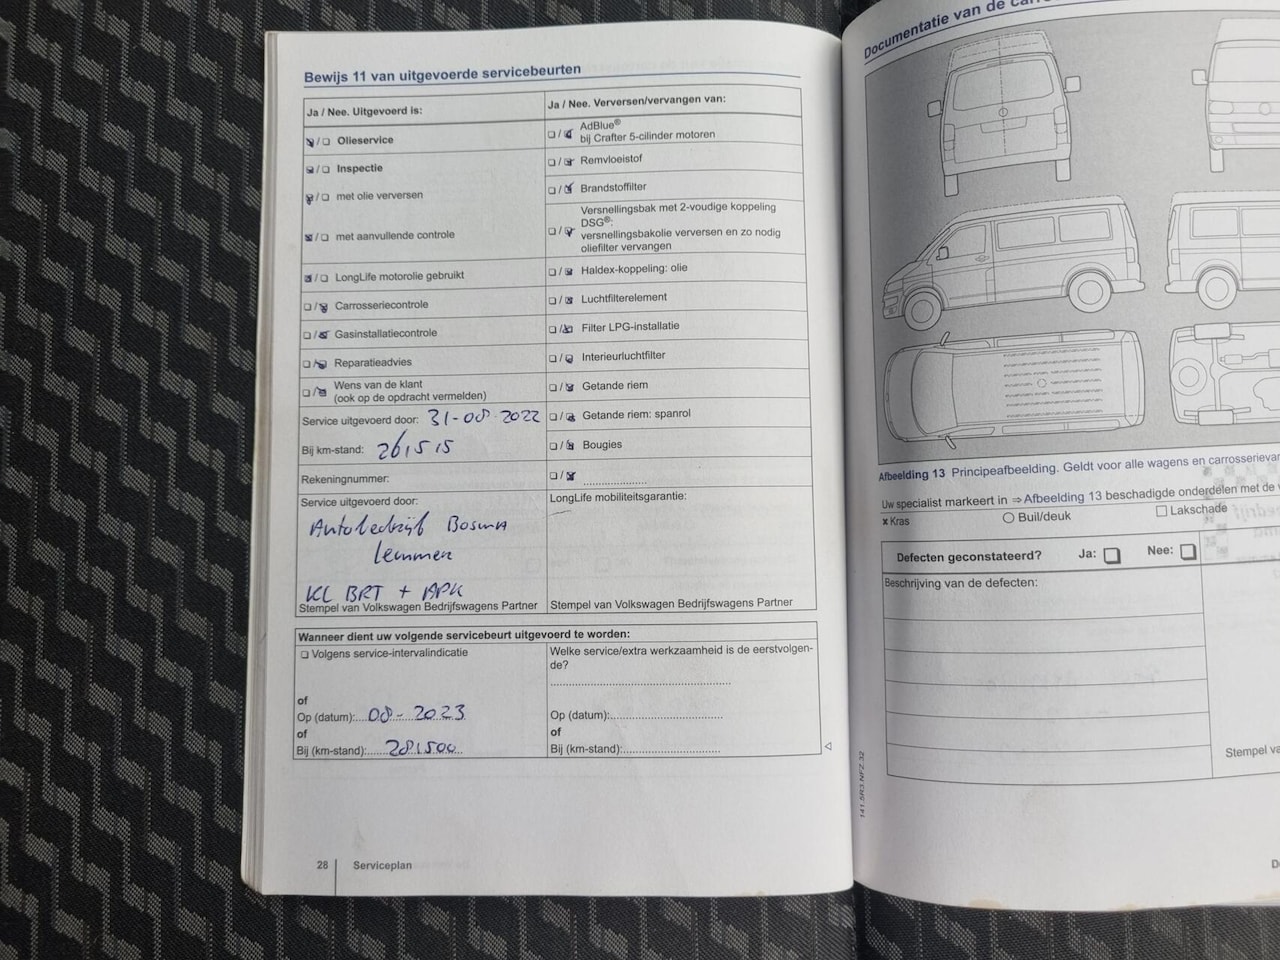 Bewijs 11 van uitgevoerde servicebeurten
Ja / Nee. Uitgevoerd is:
Olieservice
Inspectie
met olie verversen
met aanvullende controle
LongLife motorolie gebruikt
Carrosseriecontrole
Gasinstallatiecontrole
Reparatieadvies
Wens van de klant
(ook op de opdracht vermelden)
Service uitgevoerd door: 31-08-2022
Bij km-stand: 261515
Rekeningnummer:
Service uitgevoerd door:
Autobedrijf Bosma
Lemmer
KL BRT + APK
Stempel van Volkswagen Bedrijfswagens Partner
Ja / Nee. Verversen/vervangen van:
AdBlue®
bij Crafter 5-cilinder motoren
Remvloeistof
Brandstoffilter
Versnellingsbak met 2-voudige koppeling
DSG®:
versnellingsbakolie verversen en zo nodig
oliefilter vervangen
Haldex-koppeling: olie
Luchtfilterelement
Filter LPG-installatie
Interieurluchtfilter
Getande riem
Getande riem: spanrol
Bougies
LongLife mobiliteitsgarantie:
Stempel van Volkswagen Bedrijfswagens Partner
Wanneer dient uw volgende servicebeurt uitgevoerd te worden:
Volgens service-intervalindicatie
of
Op (datum):....08-2023
of
Bij (km-stand):......281500
Welke service/extra werkzaamheid is de eerstvolgen-
de?
Op (datum):
of
Bij (km-stand):
28
Serviceplan
Documentatie van de
Afbeelding 13 Principeafbeelding. Geldt voor alle wagens en
Uw specialist markeert in ⇒ Afbeelding 13 beschadigde onderdelen met de
x Kras
Buil/deuk
Lakschade
Defecten geconstateerd?
Ja:
Nee:
Beschrijving van de defecten:
Stempel
141.5R3.NFZ.32